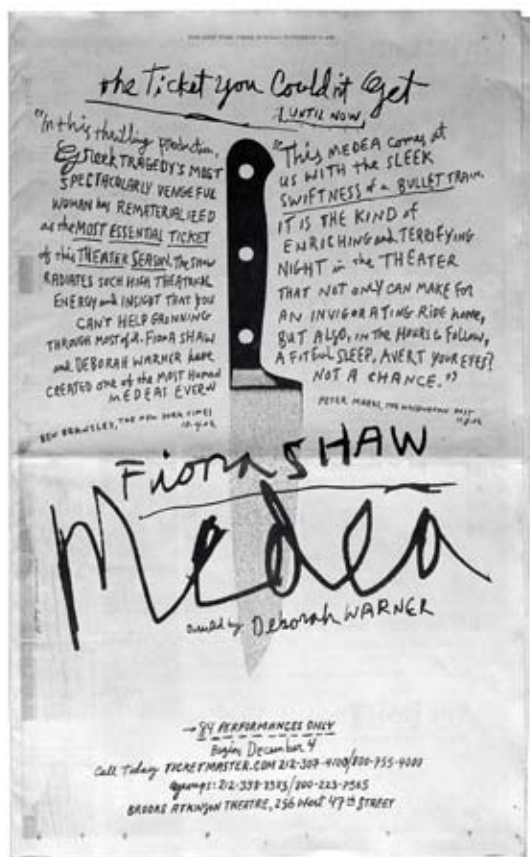 THE NEW YORK TIMES, SUNDAY, NOVEMBER
the Ticket you Couldn't Get
UNTIL NOW,
"In this thrilling production,
GREEK TRAGEDY'S MOST
SPECTACULARLY VENGEFUL
WOMAN has REMATERIALIZED
as the MOST ESSENTIAL TICKET
of this THEATER SEASON. The SHOW
RADIATES SUCH HIGH THEATRICAL
ENERGY and INSIGHT THAT YOU
CAN'T HELP GRINNING
THROUGH MOST of it. FIONA SHAW
and DEBORAH WARNER have
CREATED one of the MOST HUMAN
MEDEAS EVER"
BEN BRANTLEY, THE NEW YORK TIMES
"This MEDEA comes at
US WITH the SLEEK
SWIFTNESS of a BULLET TRAIN.
IT IS THE KIND OF
ENRICHING and TERRIFYING
NIGHT in the THEATER
THAT NOT ONLY CAN MAKE FOR
AN INVIGORATING RIDE home,
BUT ALSO, IN THE HOURS to FOLLOW,
A FITFUL SLEEP, AVERT YOUR EYES?
NOT A CHANCE."
PETER MARKS, THE WASHINGTON POST
Fiona SHAW
Medea
directed by Deborah WARNER
→ 84 PERFORMANCES ONLY
Begins December 4
Call Today TICKETMASTER.COM 212-307-4100/800-755-4000
Groups: 212-398-8383/800-223-7565
BROOKS ATKINSON THEATRE, 256 West 47th STREET